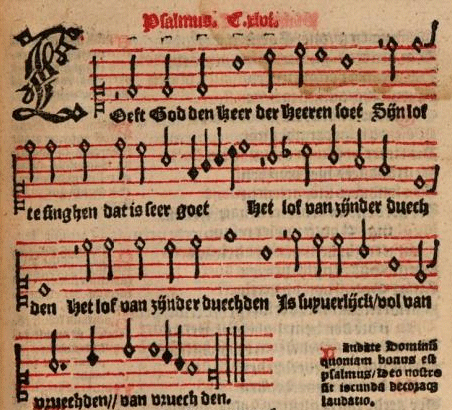 Psalmus. C.xlvi.
LOeft God den Heer der Heeren soet Sijn lof
te singhen dat is seer goet Het lof van zijnder duech
den Het lof van zijnder duechden Is supuerlijck/vol van
vruechden// van vruech den.
Laudate Dominū
quoniam bonus est
psalmus/deo nostro
sit iocunda decoraq;
laudatio.